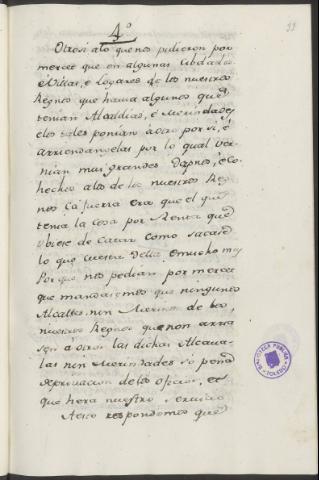 4º
Otrosi alo que nos pidieron por
merced que en algunas Cibdades
é Villas, é Logares de los nuestros
Regnos que havia algunos que
tenian Alcaldias, é Merindades,
é los tales ponian á otro por si, é
arriendanselas por lo qual ver-
nian muy grandes Dapnos, é Co-
hechos alos de los nuestros Reg-
nos Ca fuerza era que el que
tenia la Cosa por Renta que
obiese de Catar como sacase
lo que cuesta della, é mucho mas
Porque nos pedian por merced
que mandasemos que ningunos
Alcaldes, nin Merinos de los
nuestros Regnos que non arrien
sen á otros las dichas Alcaldi-
as nin Merindades so pena
de privacion de los oficios, et
que hera nuestro servicio
A esto respondemos que
BIBLIOTECA PUBLICA
TOLEDO